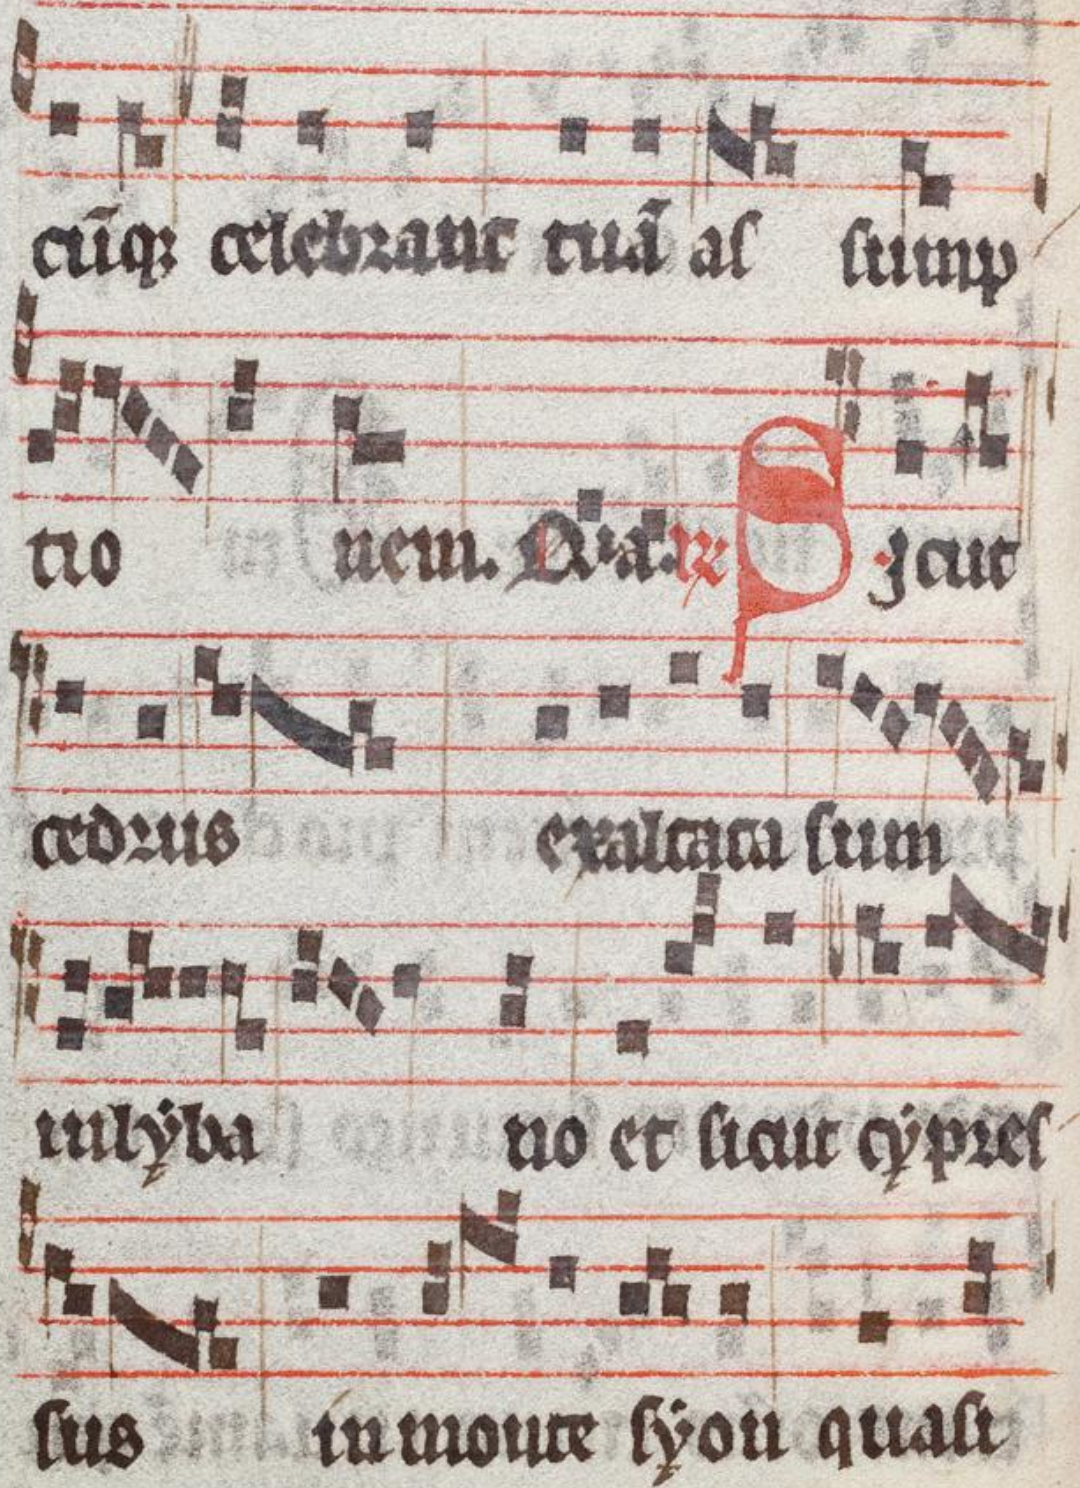 cūqꝫ celebrant tuā aſ ſump
tio nem. Quia. ℟ Sicut
cedrus exaltata ſum
in lẏba no et ſicut cẏpreſ
ſus in monte ſẏon quaſi